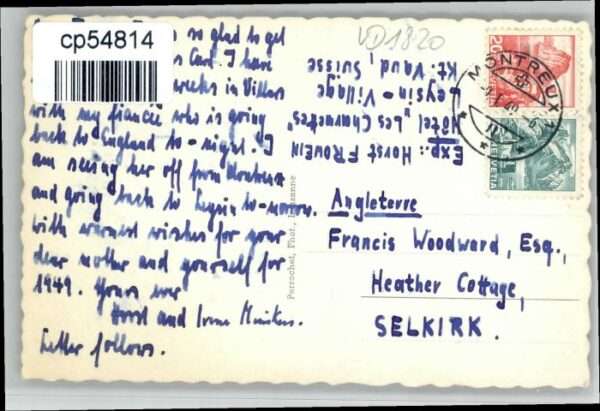 cp54814
VD 1820
so glad to get
Car. I have
weeks in Villars
with my fiancée who is going
back to England to-night. I
am seeing her off from Montreux
and going back to Leysin to-morrow.
With warmest wishes for your
dear mother and yourself for
1949. Yours ever
Horst and
Letter follows.
Exp.: Horst FROWEIN
Hôtel "Les Charmettes"
Leysin-Village
Kt. Vaud, Suisse
Perrochet, Phot., Lausanne
MONTREUX
20
HELVETIA
Angleterre
Francis Woodward, Esq.,
Heather Cottage,
SELKIRK.